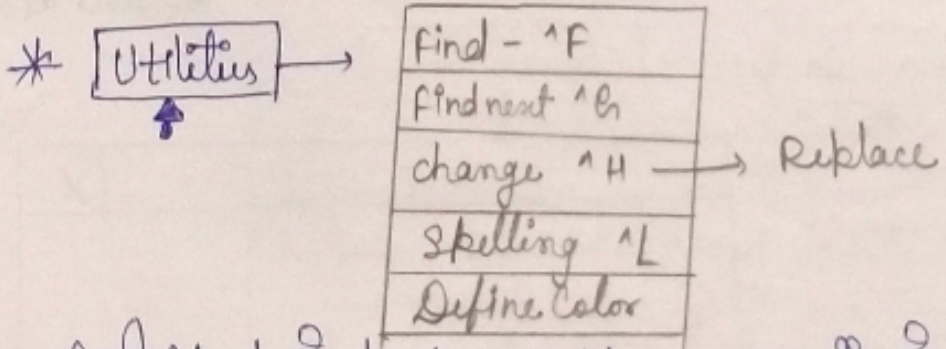 * Utilities →
Find - ^F
Find next ^G
change ^H → Replace
Spelling ^L
Define Color